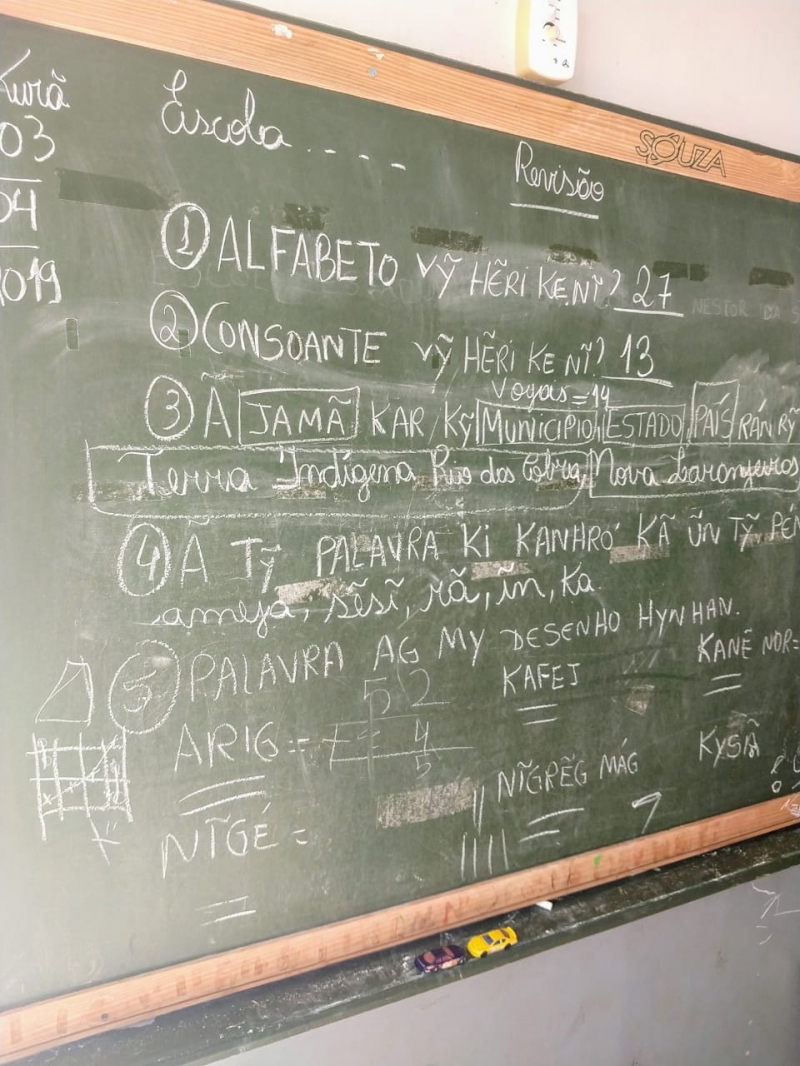 Kurã
03
04
2019
Escola . . - -
SOUZA
Revisão
① ALFABETO VỸ HẼRI KE NĨ? 27
NESTOR DA S
② CONSOANTE VỸ HẼRI KE NĨ? 13
Vogais = 14
③ Ã JAMÃ KAR KỸ MUNICIPIO, ESTADO, PAÍS RÁN RỸ
Terra Indígena Rio das Cobra, Nova Laranjeiras
④ Ã TỸ PALAVRA KI KANHRÓ KÃ ŨN TỸ PÉN
ameja, sẽsĩ, rã, ĩn, ka.
⑤ PALAVRA AG MY DESENHO HYNHAN.
52
KAFEJ
KANẼ NOR=
ARIG =
4
5
NĨGRẼG MÁG
KYSÃ
7
NĨGÉ =